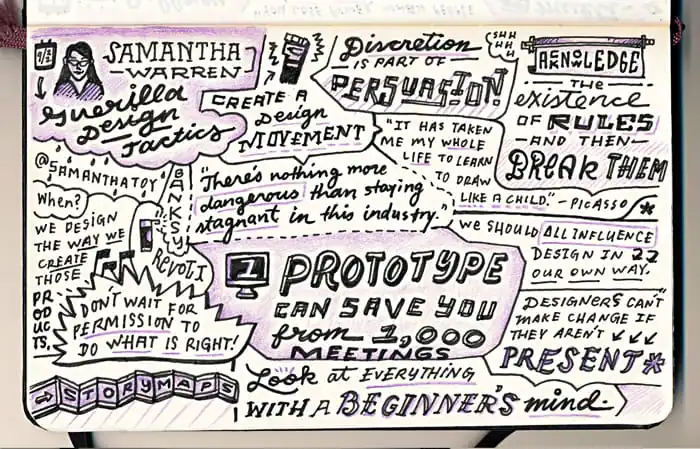 SAMANTHA
WARREN
Guerilla
Design
Tactics
@SAMANTHATOY
When?
WE DESIGN
THE WAY WE
CREATE
THOSE
PR
OD
UC
TS.
BANKSY
REVOLT!
DON'T WAIT FOR
PERMISSION TO
DO WHAT IS RIGHT!
→ STORYMAPS
CREATE A
Design
MOVEMENT
Discretion
IS PART OF
PERSUASION
SHH
HH
H
AKNOLEDGE
THE
existence
OF RULES
AND THEN
BREAK THEM
"IT HAS TAKEN
ME MY WHOLE
LIFE TO LEARN
TO DRAW
LIKE A CHILD." - PICASSO *
"There's nothing more
dangerous than staying
stagnant in this industry."
WE SHOULD ALL INFLUENCE
DESIGN IN
OUR OWN WAY.
1 PROTOTYPE
CAN SAVE YOU
from 1,000
MEETINGS
DESIGNERS CAN'T
MAKE CHANGE IF
THEY AREN'T ↙↙↙
PRESENT*
Look at EVERYTHING
WITH A BEGINNER'S mind.